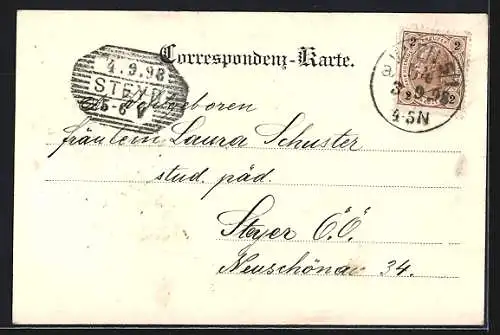 Correspondenz-Karte.
4.9.98
STEYR
5-6 V
2 2
3.9.98
4-5N
2 2
Hochgeboren
Fräulein Laura Schuster
stud. päd.
Steyer Ö.Ö.
Neuschönau 34.